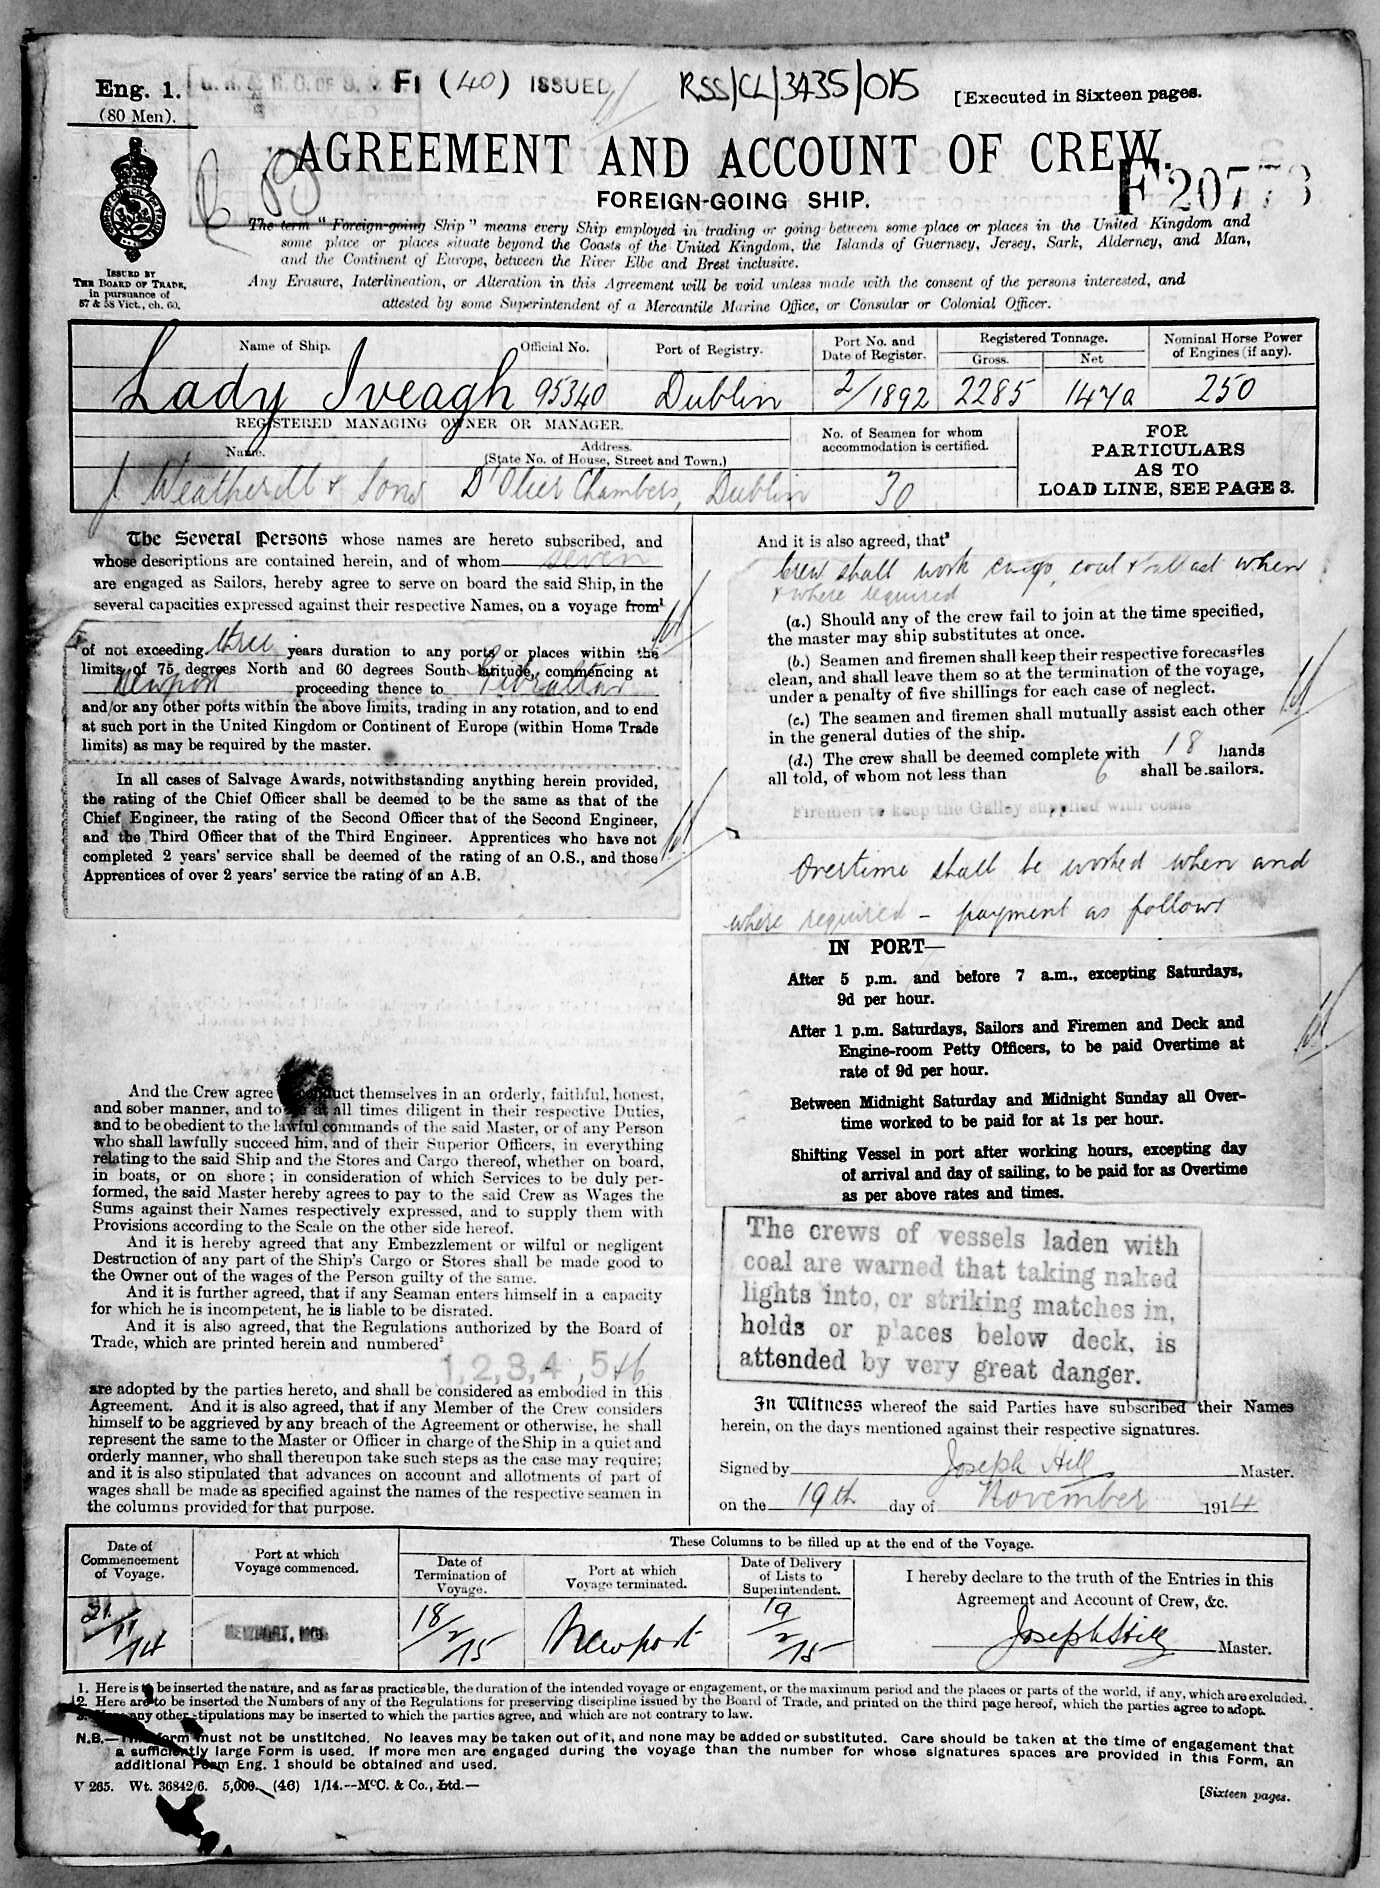 Eng. 1.
(80 Men).
FI (40) ISSUED
RSS/CL/3435/015
[Executed in Sixteen pages.
AGREEMENT AND ACCOUNT OF CREW.
F20773
FOREIGN-GOING SHIP.
ISSUED BY
THE BOARD OF TRADE,
in pursuance of
57 & 58 Vict., ch. 60.
The term "Foreign-going Ship" means every Ship employed in trading or going between some place or places in the United Kingdom and
some place or places situate beyond the Coasts of the United Kingdom, the Islands of Guernsey, Jersey, Sark, Alderney, and Man,
and the Continent of Europe, between the River Elbe and Brest inclusive.
Any Erasure, Interlineation, or Alteration in this Agreement will be void unless made with the consent of the persons interested, and
attested by some Superintendent of a Mercantile Marine Office, or Consular or Colonial Officer.
Name of Ship. Official No. Port of Registry. Port No. and Date of Register. Registered Tonnage. Gross. Net Nominal Horse Power of Engines (if any).
Lady Iveagh 95340 Dublin 2/1892 2285 1470 250
REGISTERED MANAGING OWNER OR MANAGER.
Name. Address. (State No. of House, Street and Town.)
No. of Seamen for whom accommodation is certified.
J Weatherill & Sons D'Olier Chambers, Dublin 30
FOR
PARTICULARS
AS TO
LOAD LINE, SEE PAGE 3.
The Several Persons whose names are hereto subscribed, and
whose descriptions are contained herein, and of whom seven
are engaged as Sailors, hereby agree to serve on board the said Ship, in the
several capacities expressed against their respective Names, on a voyage from¹
of not exceeding three years duration to any ports or places within the
limits of 75 degrees North and 60 degrees South latitude, commencing at
Newport proceeding thence to Gibraltar
and/or any other ports within the above limits, trading in any rotation, and to end
at such port in the United Kingdom or Continent of Europe (within Home Trade
limits) as may be required by the master.
In all cases of Salvage Awards, notwithstanding anything herein provided,
the rating of the Chief Officer shall be deemed to be the same as that of the
Chief Engineer, the rating of the Second Officer that of the Second Engineer,
and the Third Officer that of the Third Engineer. Apprentices who have not
completed 2 years' service shall be deemed of the rating of an O.S., and those
Apprentices of over 2 years' service the rating of an A.B.
And the Crew agree to conduct themselves in an orderly, faithful, honest,
and sober manner, and to be at all times diligent in their respective Duties,
and to be obedient to the lawful commands of the said Master, or of any Person
who shall lawfully succeed him, and of their Superior Officers, in everything
relating to the said Ship and the Stores and Cargo thereof, whether on board,
in boats, or on shore; in consideration of which Services to be duly per-
formed, the said Master hereby agrees to pay to the said Crew as Wages the
Sums against their Names respectively expressed, and to supply them with
Provisions according to the Scale on the other side hereof.
And it is hereby agreed that any Embezzlement or wilful or negligent
Destruction of any part of the Ship's Cargo or Stores shall be made good to
the Owner out of the wages of the Person guilty of the same.
And it is further agreed, that if any Seaman enters himself in a capacity
for which he is incompetent, he is liable to be disrated.
And it is also agreed, that the Regulations authorized by the Board of
Trade, which are printed herein and numbered²
1, 2, 3, 4, 5 & 6
are adopted by the parties hereto, and shall be considered as embodied in this
Agreement. And it is also agreed, that if any Member of the Crew considers
himself to be aggrieved by any breach of the Agreement or otherwise, he shall
represent the same to the Master or Officer in charge of the Ship in a quiet and
orderly manner, who shall thereupon take such steps as the case may require;
and it is also stipulated that advances on account and allotments of part of
wages shall be made as specified against the names of the respective seamen in
the columns provided for that purpose.
And it is also agreed, that³
Crew shall work cargo, coal & ballast when
& where required
(a.) Should any of the crew fail to join at the time specified,
the master may ship substitutes at once.
(b.) Seamen and firemen shall keep their respective forecastles
clean, and shall leave them so at the termination of the voyage,
under a penalty of five shillings for each case of neglect.
(c.) The seamen and firemen shall mutually assist each other
in the general duties of the ship.
(d.) The crew shall be deemed complete with 18 hands
all told, of whom not less than 6 shall be sailors.
Firemen to keep the Galley supplied with coals
Overtime shall be worked when and
where required - payment as follows
IN PORT—
After 5 p.m. and before 7 a.m., excepting Saturdays,
9d per hour.
After 1 p.m. Saturdays, Sailors and Firemen and Deck and
Engine-room Petty Officers, to be paid Overtime at
rate of 9d per hour.
Between Midnight Saturday and Midnight Sunday all Over-
time worked to be paid for at 1s per hour.
Shifting Vessel in port after working hours, excepting day
of arrival and day of sailing, to be paid for as Overtime
as per above rates and times.
The crews of vessels laden with
coal are warned that taking naked
lights into, or striking matches in,
holds or places below deck, is
attended by very great danger.
In Witness whereof the said Parties have subscribed their Names
herein, on the days mentioned against their respective signatures.
Signed by Joseph Hill Master.
on the 19th day of November 1914
Date of Commencement of Voyage. Port at which Voyage commenced. These Columns to be filled up at the end of the Voyage.
Date of Termination of Voyage. Port at which Voyage terminated. Date of Delivery of Lists to Superintendent.
I hereby declare to the truth of the Entries in this
Agreement and Account of Crew, &c.
21/11/14 NEWPORT, MON. 18/2/15 Newport 19/2/15 Joseph Hill Master.
1. Here is to be inserted the nature, and as far as practicable, the duration of the intended voyage or engagement, or the maximum period and the places or parts of the world, if any, which are excluded.
2. Here are to be inserted the Numbers of any of the Regulations for preserving discipline issued by the Board of Trade, and printed on the third page hereof, which the parties agree to adopt.
3. Here any other stipulations may be inserted to which the parties agree, and which are not contrary to law.
N.B.—This form must not be unstitched. No leaves may be taken out of it, and none may be added or substituted. Care should be taken at the time of engagement that
a sufficiently large Form is used. If more men are engaged during the voyage than the number for whose signatures spaces are provided in this Form, an
additional Form Eng. 1 should be obtained and used.
V 265. Wt. 36842/6. 5,000. (46) 1/14.--McC. & Co., Ltd.—
[Sixteen pages.